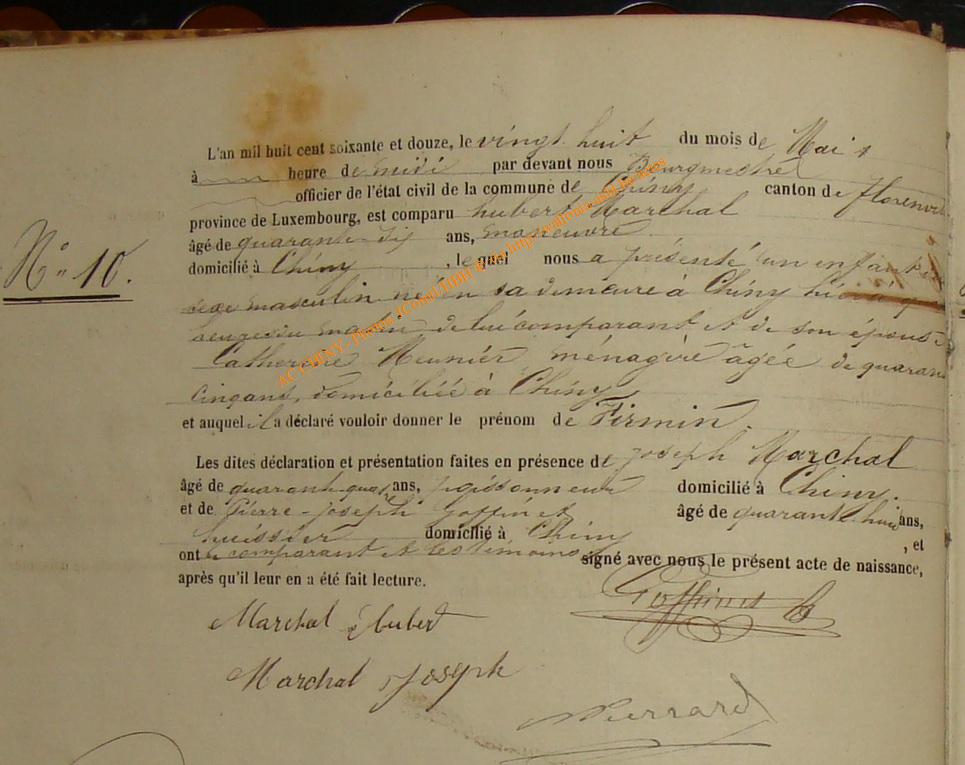 L'an mil huit cent soixante et douze, le vingt huit du mois de Mai
à heure de midi par devant nous Bourgmestre
officier de l'état civil de la commune de Chiny canton de Florenvil
province de Luxembourg, est comparu hubert Marchal
âgé de quarante six ans, manœuvre
N° 10.
domicilié à Chiny, lequel nous a présenté un enfant
sexe masculin né en sa demeure à Chiny hier à
heures du matin, de lui comparant et de son épouse
Catherine Meunier ménagère âgée de quaran
cinq ans, domiciliée à Chiny
et auquel il a déclaré vouloir donner le prénom de Firmin.
Les dites déclaration et présentation faites en présence de Joseph Marchal
âgé de quarante quat ans, domicilié à Chiny.
et de Pierre-Joseph Goffinet âgé de quarante-huit ans,
huissier domicilié à Chiny, et
ont comparant et les témoins signé avec nous le présent acte de naissance,
après qu'il leur en a été fait lecture.
Goffinet
Marchal hubert
Marchal Joseph
Pierrard